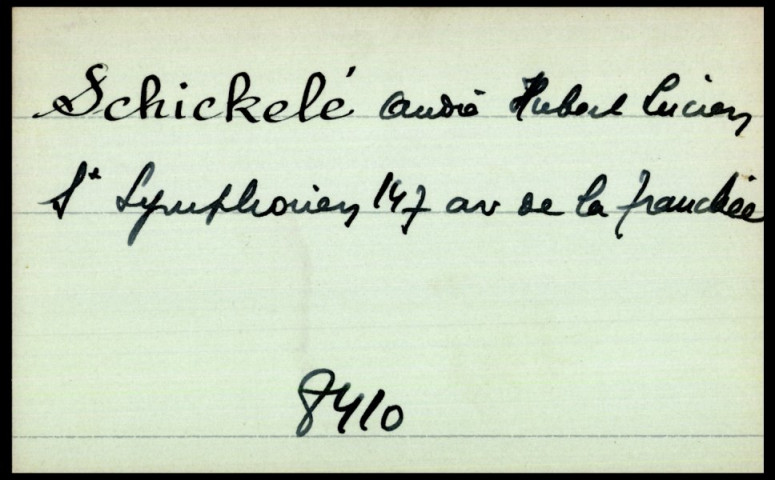 Schickelé André Hubert Lucien
St Symphorien 147 av de la Tranchée
8410